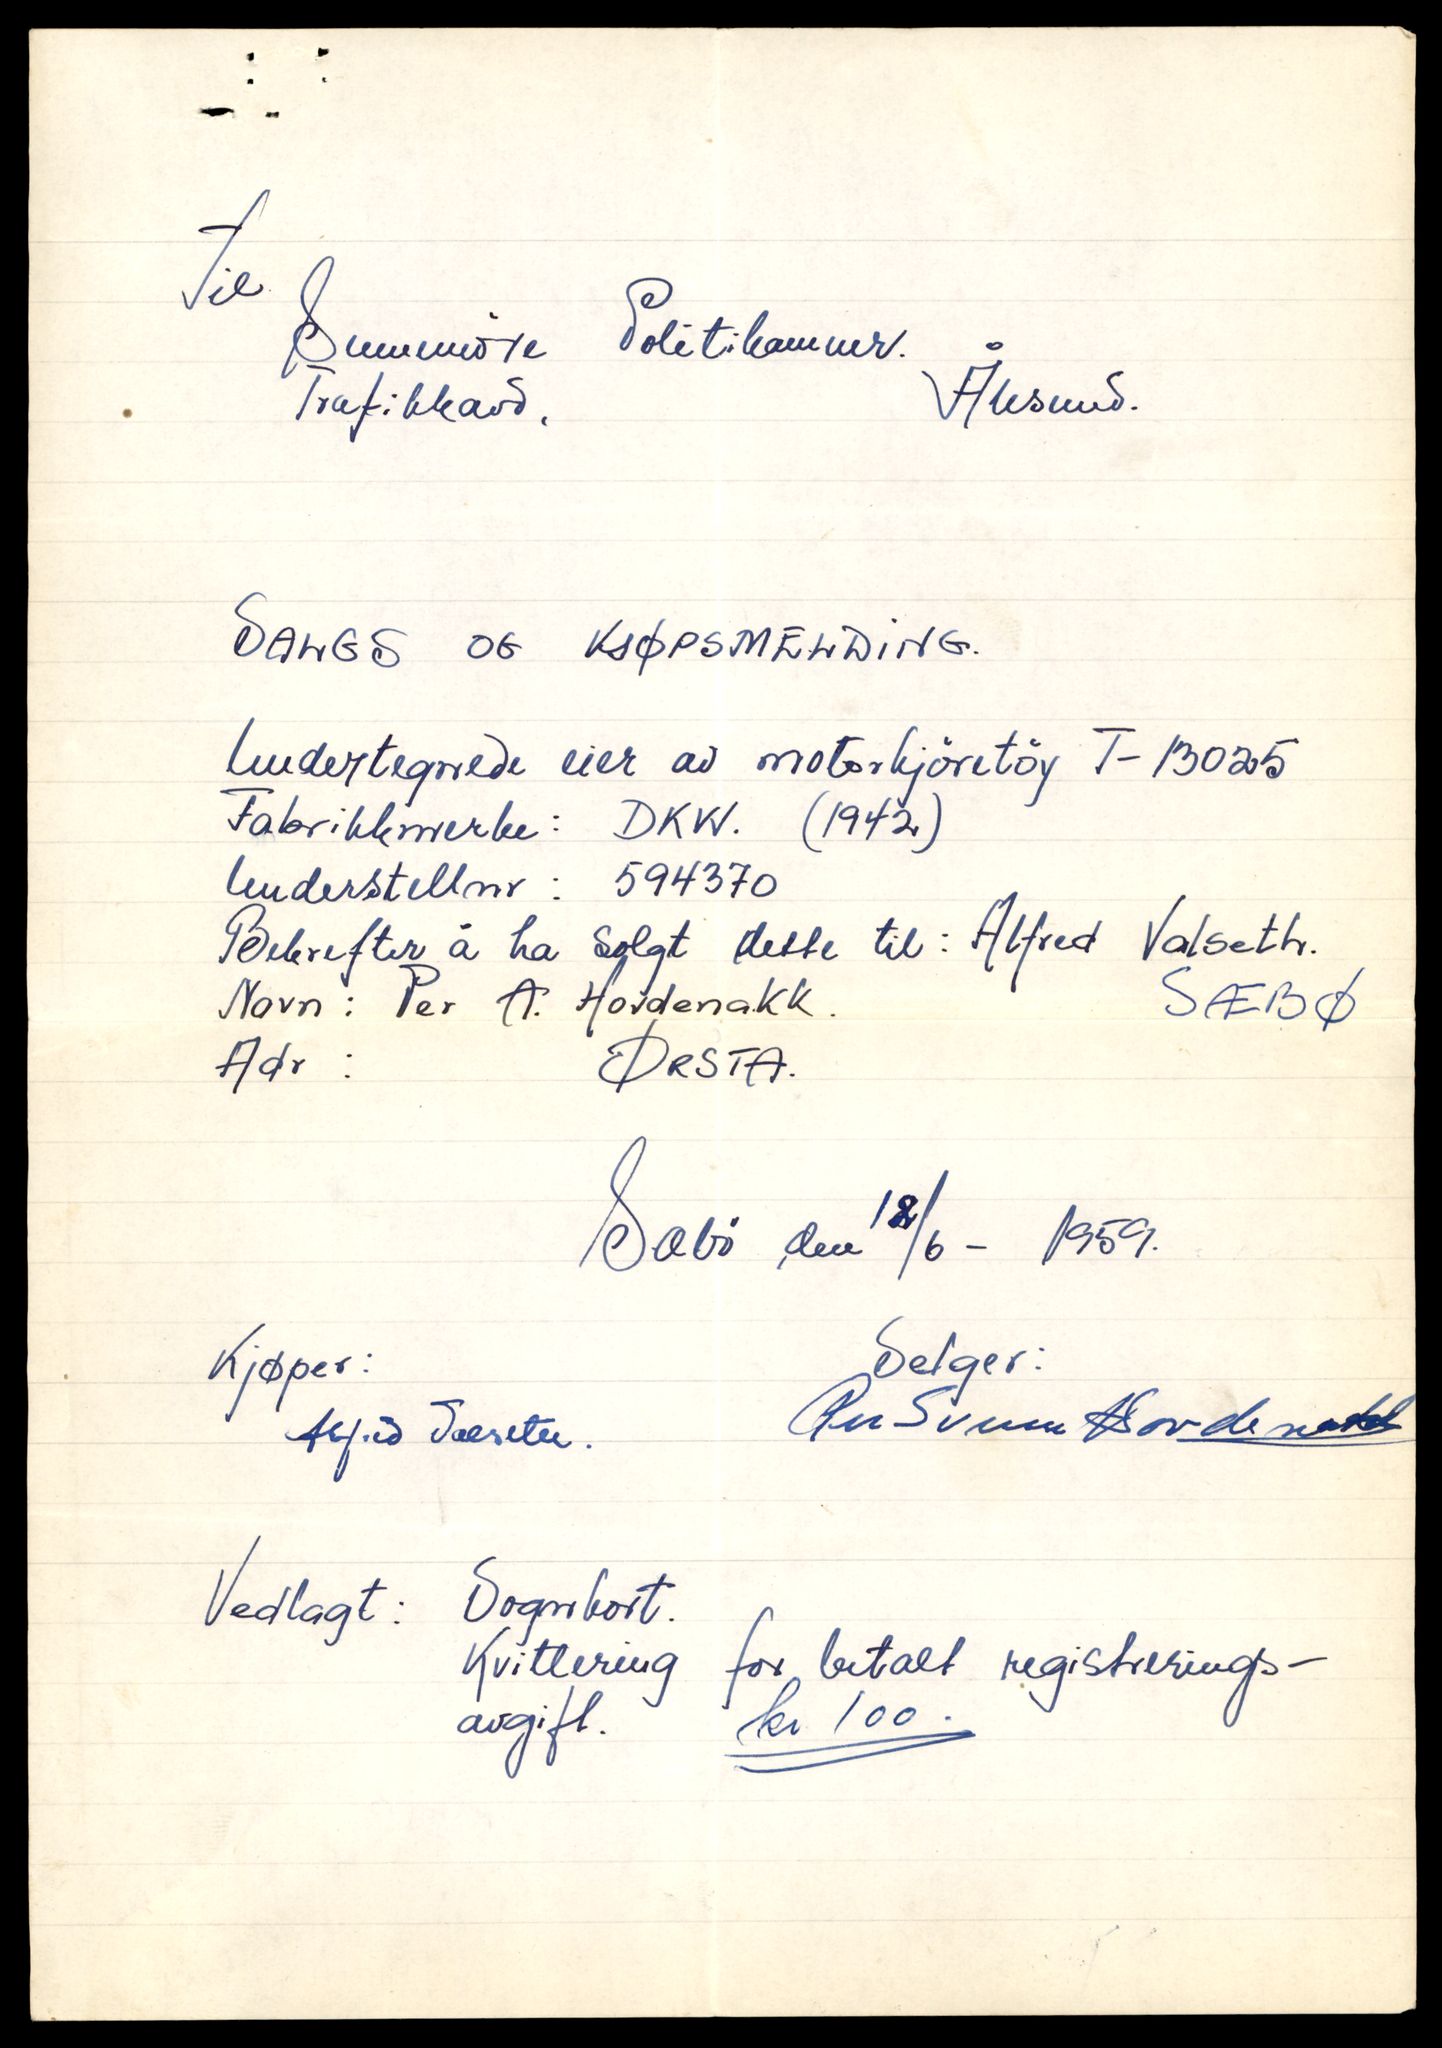 Til
Sunnmöre Politikammer.
Trafikkavd. Ålesund.
SALGS OG KJØPSMELDING.
Undertegnede eier av motorkjöretöy T-13025
Fabrikkmerke: DKW. (1942)
Understellnr: 594370
Bekrefter å ha solgt dette til: Alfred Valseth.
Navn: Per A. Hovdenakk. SÆBØ
Adr: ØRSTA.
Sæbö den 12/6 - 1959.
Kjøper: Selger:
Alfred Valseth. Hovdenakk
Vedlagt: Vognkort.
Kvittering for betalt registrerings-
avgift. kr 100.